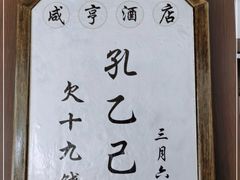 咸亨酒店
三月六
孔乙己
欠十九钱